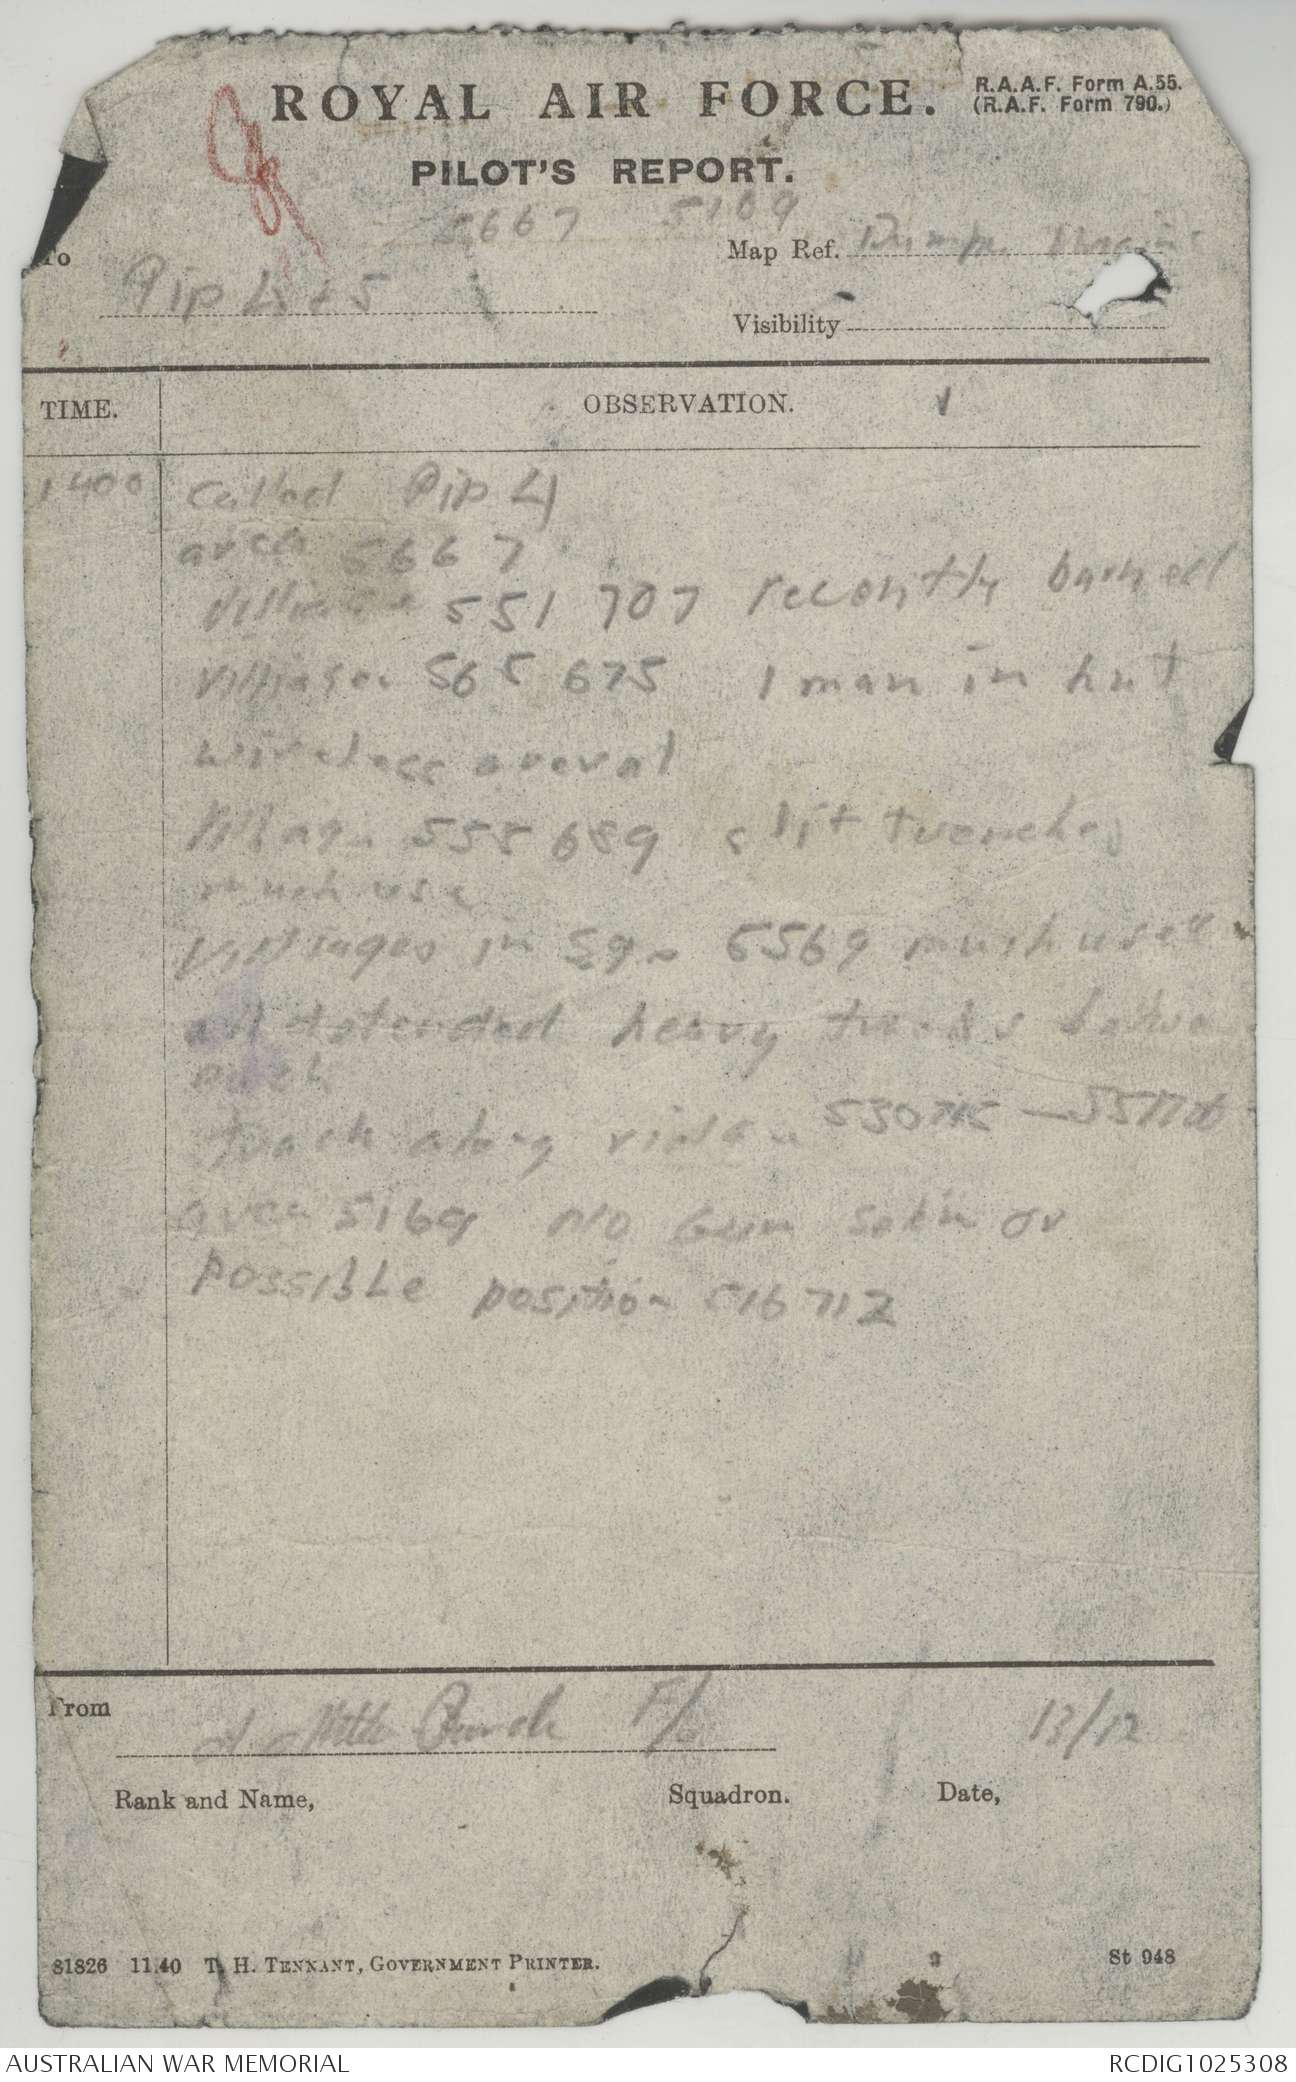 ROYAL AIR FORCE.
R.A.A.F. Form A.55.
(R.A.F. Form 790.)
PILOT'S REPORT.
5667 5169
To Pip 4 + 5
Map Ref.
Visibility
TIME. OBSERVATION.
1400 called Pip 4
area 5667
Village 551 707 recently burned
Village 565 675 1 man in hut
wireless areval
Village 555 689 slit trenches
much use
Villages in sq. 5569 much used
all extended heavy tracks between
each
track along ridge 530715 —
area 5169 No Gun or
possible position 516712
From F/O 13/12
Rank and Name, Squadron. Date,
81826 11.40 T. H. TENNANT, GOVERNMENT PRINTER. St 948
AUSTRALIAN WAR MEMORIAL RCDIG1025308